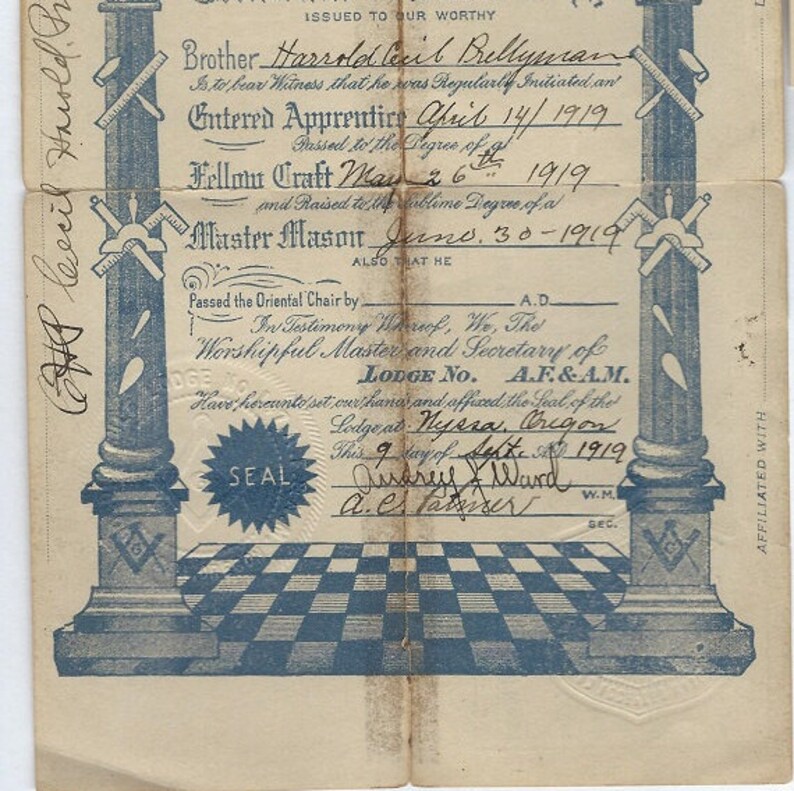 ISSUED TO OUR WORTHY
Brother Harrold Cecil Prettyman
Is to bear Witness that he was Regularly Initiated an
Entered Apprentice April 14/1919
Passed to the Degree of a
Fellow Craft May 26th 1919
and Raised to the Sublime Degree of a
Master Mason June. 30-1919
ALSO THAT HE
Passed the Oriental Chair by A.D.
In Testimony Whereof, We, The
Worshipful Master and Secretary of
LODGE NO. A.F. & A.M.
Have hereunto set our hands and affixed the Seal of the
Lodge at Nyssa, Oregon
This 9 day of Sept. A.D. 1919
SEAL
Ward W.M.
A.C. Palmer
SEC.
G
G
Cecil Harold
AFFILIATED WITH
LODGE NO